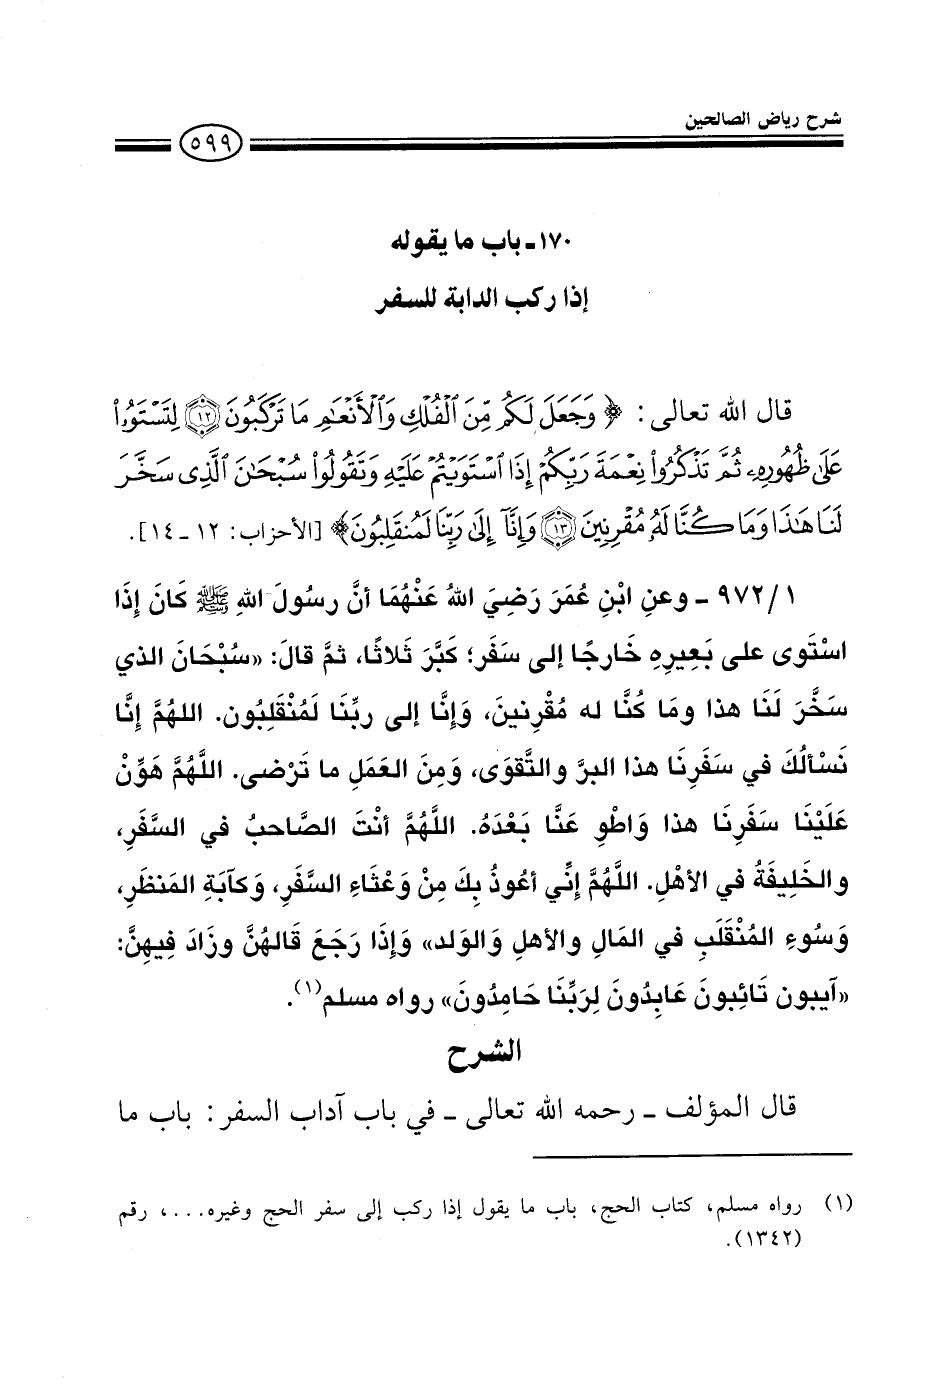 شرح رياض الصالحين
٥٩٩
١٧٠ـ باب ما يقوله
إذا ركب الدابة للسفر
قال الله تعالى: ﴿وَجَعَلَ لَكُم مِّنَ ٱلْفُلْكِ وَٱلْأَنْعَٰمِ مَا تَرْكَبُونَ ١٢ لِتَسْتَوُۥا۟
عَلَىٰ ظُهُورِهِۦ ثُمَّ تَذْكُرُوا۟ نِعْمَةَ رَبِّكُمْ إِذَا ٱسْتَوَيْتُمْ عَلَيْهِ وَتَقُولُوا۟ سُبْحَٰنَ ٱلَّذِى سَخَّرَ
لَنَا هَٰذَا وَمَا كُنَّا لَهُۥ مُقْرِنِينَ ١٣ وَإِنَّآ إِلَىٰ رَبِّنَا لَمُنقَلِبُونَ﴾ [الأحزاب: ١٢ ـ ١٤].
٩٧٢/١ ـ وعنِ ابْنِ عُمَرَ رَضِيَ اللهُ عَنْهُمَا أنَّ رسُولَ اللهِ ﷺ كَانَ إِذَا
اسْتَوى على بَعِيرِهِ خَارجًا إلى سَفَرٍ؛ كَبَّرَ ثَلاثًا، ثمَّ قالَ: «سُبْحَانَ الذي
سَخَّرَ لَنَا هذا ومَا كُنَّا له مُقْرِنينَ، وَإِنَّا إلى ربِّنَا لَمُنْقَلِبُون. اللهُمَّ إنَّا
نَسْألُكَ في سَفَرِنَا هذا البرَّ والتَّقوَى، ومِنَ العَمَلِ ما تَرْضى. اللَّهُمَّ هَوِّنْ
عَلَيْنَا سَفَرِنَا هذا وَاطْوِ عَنَّا بَعْدَهُ. اللَّهُمَّ أنْتَ الصَّاحبُ في السَّفَرِ،
والخَلِيفَةُ في الأهْلِ. اللَّهُمَّ إنِّي أعُوذُ بِكَ مِنْ وَعْثَاءِ السَّفَرِ، وَكآبَةِ المَنظَرِ،
وَسُوءِ المُنْقَلَبِ في المَالِ والأهلِ وَالوَلد» وَإِذَا رَجَعَ قَالهُنَّ وزَادَ فِيهِنَّ:
«آيبون تَائِبونَ عَابِدُونَ لِرَبِّنَا حَامِدُونَ» رواه مسلم(١).
الشرح
قال المؤلف ـ رحمه الله تعالى ـ في باب آداب السفر: باب ما
(١) رواه مسلم، كتاب الحج، باب ما يقول إذا ركب إلى سفر الحج وغيره...، رقم
(١٣٤٢).